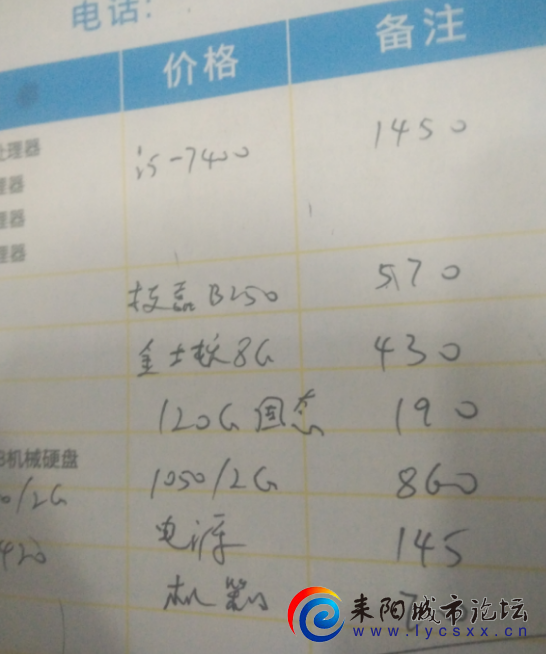 电话:
价格 备注
处理器 i5-7400 1450
理器
理器
理器
技嘉B250 570
金士顿8G 430
120G固态 190
B机械硬盘 1050/2G 860
0/2G 电源 145
420 机箱
耒阳城市论坛
www.lycsxx.cn